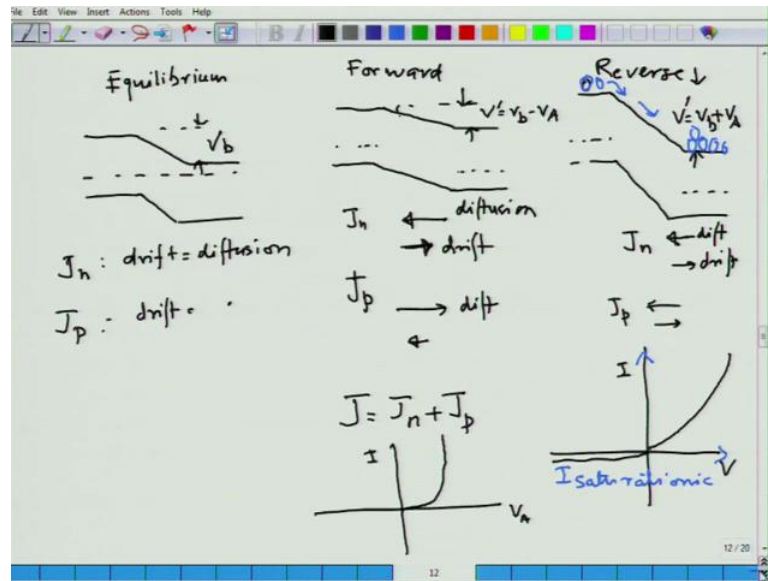 File Edit View Insert Actions Tools Help
Equilibrium
Vb
Jn : drift = diffusion
Jp : drift =
Forward
V' = Vb - VA
Jn ← diffusion
→ drift
Jp → dift
←
J = Jn + Jp
I
VA
Reverse ↓
V' = Vb + VA
Jn ← dift
→ drift
Jp ←
→
I
V
I saturation
12 / 20
12